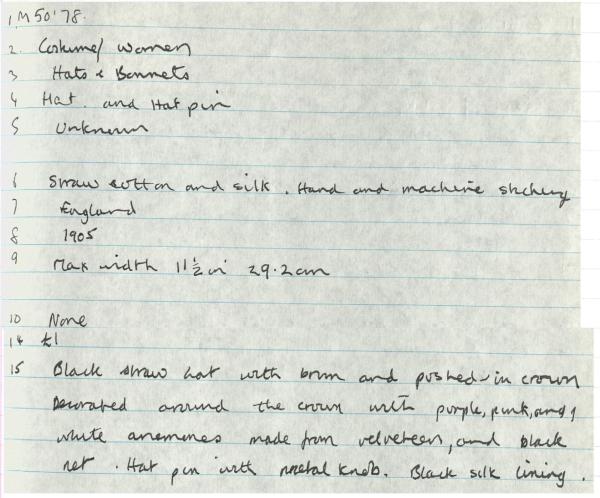 1. M50'78.
2. Costume/ women
3 Hats & Bonnets
4 Hat. and Hat pin
5 Unknown
6 Straw cotton and silk. Hand and machine stitching
7 England
8 1905
9 Max width 11½ in 29.2cm
10 None
14 £1
15 Black straw hat with brim and pushed-in crown
Decorated around the crown with purple, pink, and
white anemones made from velveteen, and black
net. Hat pin with metal knob. Black silk lining.